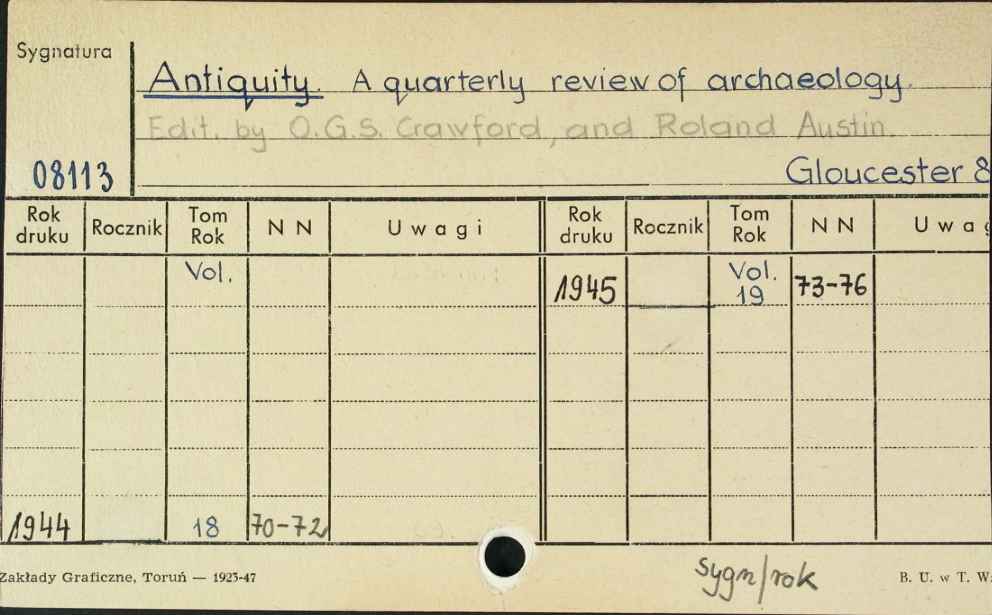 Sygnatura
Antiquity. A quarterly review of archaeology.
Edit. by O.G.S. Crawford, and Roland Austin.
08113
Gloucester 8
Rok druku Rocznik Tom Rok N N Uwagi Rok druku Rocznik Tom Rok N N Uwag
Vol. 1945 Vol. 19 73-76
1944 18 70-72
Zakłady Graficzne, Toruń — 1925-47
sygn/rok
B. U. w T. W